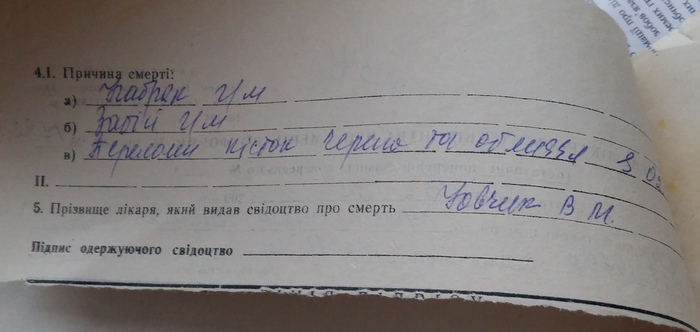 4.I. Причина смерті:
а) Набряк г/м
б) Забій г/м
в) Переломи кісток черепа та обличчя
II.
5. Прізвище лікаря, який видав свідоцтво про смерть В М.
Підпис одержуючого свідоцтво